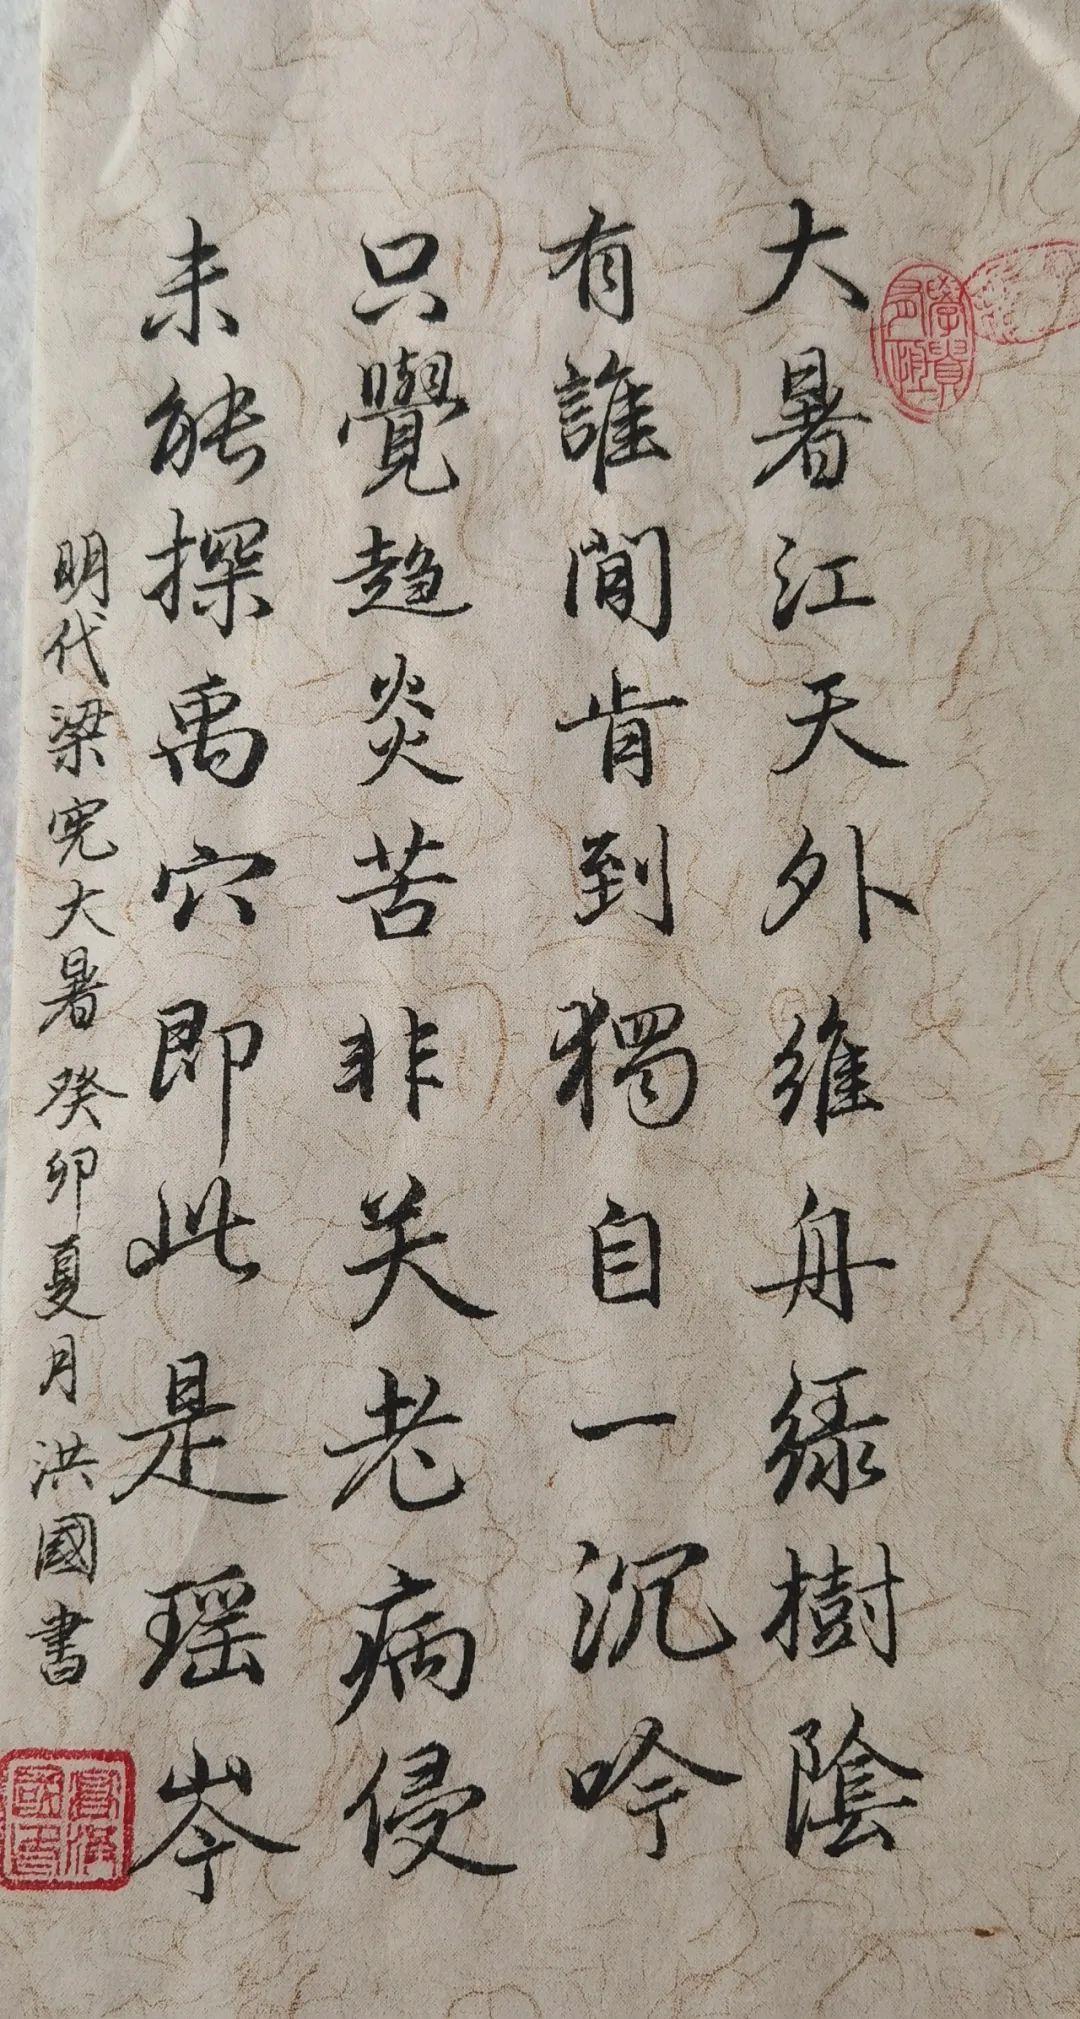 大暑江天外維舟绿樹陰
有誰閒肯到獨自一沉吟
只覺趋炎苦非关老病侵
未能探禹穴即此是瑶岑
明代梁宪大暑癸卯夏月洪國書
學貴有恒